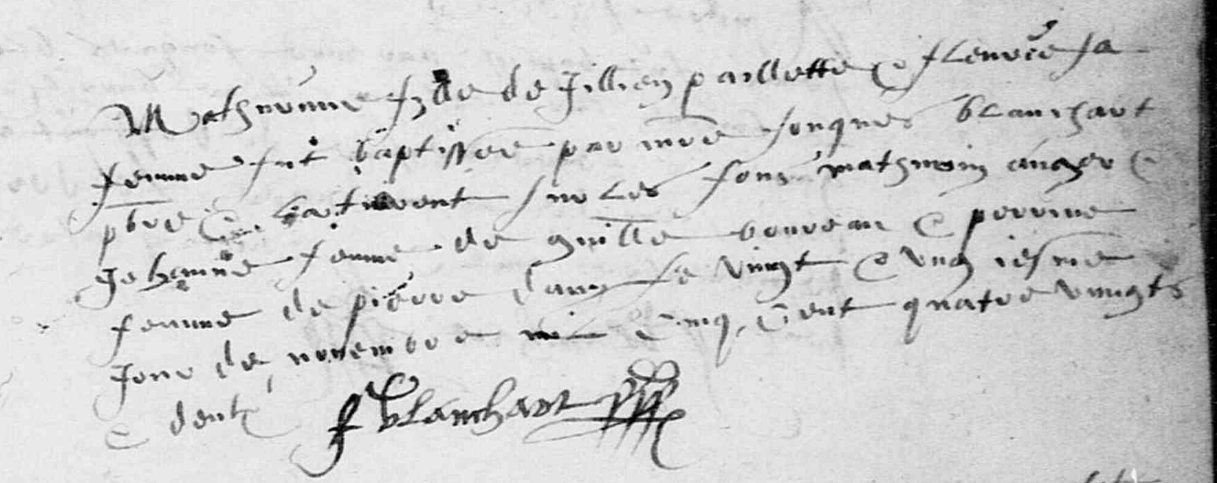 Mathurinne fille de Jullien paillette & fleurẽce sa
femme fut baptissee par mre Jouques blanchart
pbre & la tiendrent sur les fons mathurin auger &
Jehanne femme de guille boureau & perrine
femme de pierre dauy le vingt & ung iesme
jour de novembre mil cinq cent quatre vingts
& deulx f blanchart